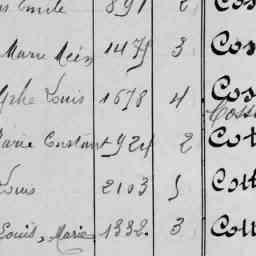 Emile 891 2 Cos
Marie 1475 3 Cos
Louis 1678 4 Cos
Coss
Marie Constant 924 2 Cot
Louis 2103 5 Cott
Louis, Marie 1332. 3 Cott